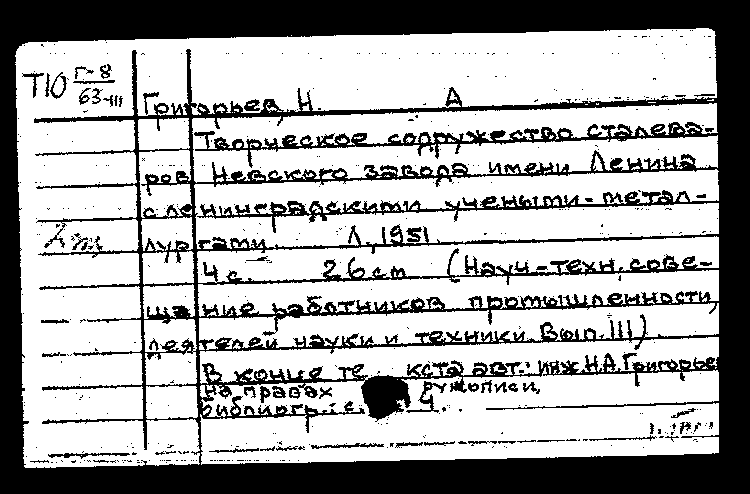 Т10 Г-8
63-III
Григорьев, Н. А
Творческое содружество сталева-
ров Невского завода имени Ленина
с ленинградскими учеными-метал-
лургами. Л., 1951.
4 с. 26 см (Науч-техн. сове-
щание работников промышленности,
деятелей науки и техники. Вып. III)
В конце текста авт.: инж. Н.А. Григорьев
На правах рукописи.
библиогр.: с. 4.